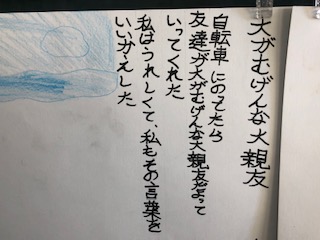 大がむげんな大親友
自転車にのってたら
友達が大がむげんな大親友だよって
いってくれた
私はうれしくて、私もその言葉を
いいかえした